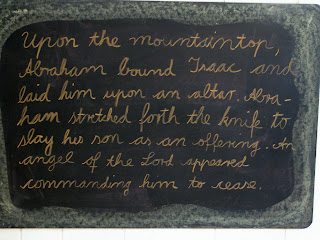 Upon the mountaintop,
Abraham bound Isaac and
laid him upon an altar. Abra-
ham stretched forth the knife to
slay his son as an offering. An
angel of the Lord appeared
commanding him to cease.